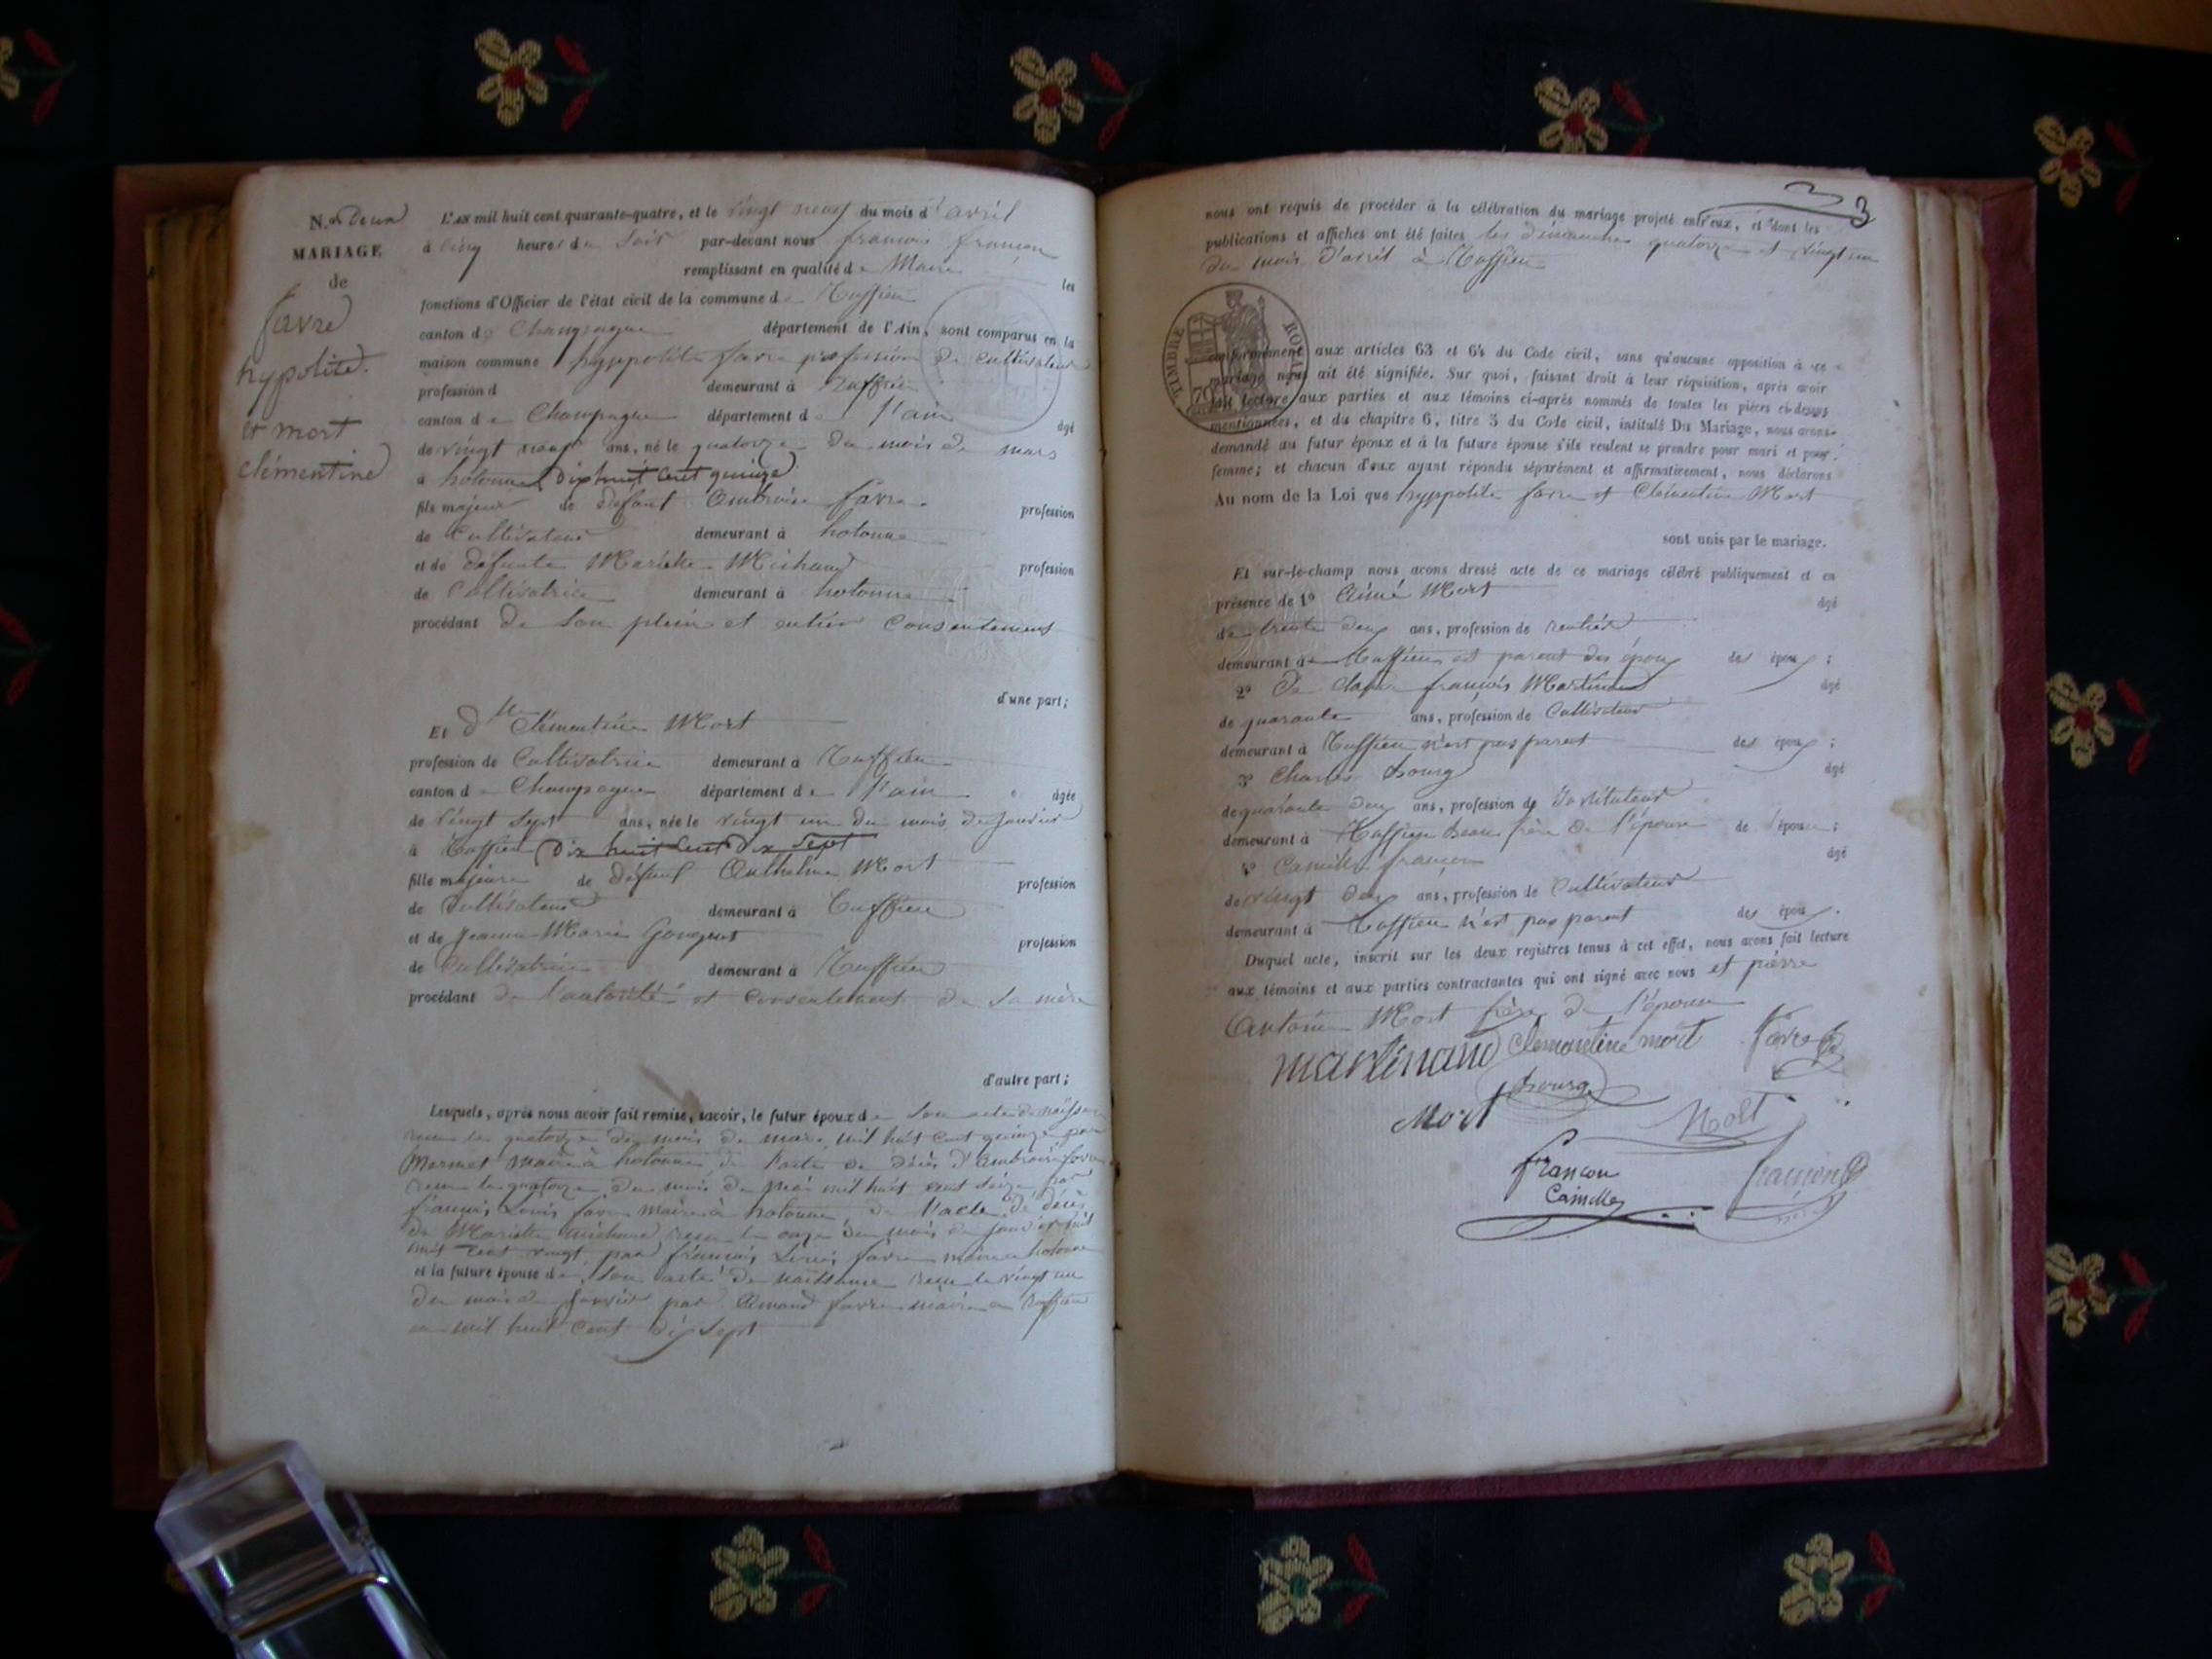 N.o Deux
MARIAGE
de
favre
hypolite
et mort
clémentine
L'AN mil huit cent quarante-quatre, et le vingt neuf du mois d'avril
à cinq heures du soir par-devant nous françois françon
remplissant en qualité de Maire les
fonctions d'Officier de l'état civil de la commune de Ruffieu
canton de Champagne département de l'Ain, sont comparus en la
maison commune hyppolite favre profession de cultivateur
profession d demeurant à Ruffieu
canton de Champagne département de l'ain âgé
de vingt neuf ans, né le quatorze du mois de mars
à hotonne Dix huit cent quinze
fils majeur de défunt Ambroise favre profession
de Cultivateur demeurant à hotonne
et de défunte Mariette Michaud profession
de Cultivatrice demeurant à hotonne
procédant de son plein et entier consentement
d'une part;
Et Dlle Clémentine Mort
profession de Cultivatrice demeurant à Ruffieu
canton de Champagne département de l'ain âgée
de vingt sept ans, née le vingt un du mois de janvier
à Ruffieu Dix huit cent Dix Sept
fille majeure de défunt Anthelme Mort profession
de Cultivateur demeurant à Ruffieu
et de Jeanne Marie profession
de Cultivatrice demeurant à Ruffieu
procédant de l'autorité et consentement de sa mère
d'autre part;
Lesquels, après nous avoir fait remise, savoir, le futur époux de son acte de naissance
reçu le quatorze du mois de mars mil huit cent quinze par
Mermet maire à hotonne de l'acte de décès d'Ambroise favre
reçu le quatorze du mois de mil huit cent seize par
françois Louis favre maire à hotonne de l'acte de décès
de Mariette michaud reçu le onze du mois de janvier mil
huit cent vingt par françois Louis favre maire à hotonne
et la future épouse de son acte de naissance reçu le vingt un
du mois de janvier par Amand favre maire à Ruffieu
en mil huit cent dix sept
3
nous ont requis de procéder à la célébration du mariage projeté entr'eux, et dont les
publications et affiches ont été faites les dimanches quatorze et vingt un
du mois d'avril à Ruffieu
TIMBRE ROYAL
conformément aux articles 63 et 64 du Code civil, sans qu'aucune opposition à ce
mariage nous ait été signifiée. Sur quoi, faisant droit à leur réquisition, après avoir
fait lecture aux parties et aux témoins ci-après nommés de toutes les pièces ci-dessus
mentionnées, et du chapitre 6, titre 5 du Code civil, intitulé Du Mariage, nous avons
demandé au futur époux et à la future épouse s'ils veulent se prendre pour mari et pour
femme; et chacun d'eux ayant répondu séparément et affirmativement, nous déclarons
Au nom de la Loi que hyppolite favre et Clémentine Mort
sont unis par le mariage.
Et sur-le-champ nous avons dressé acte de ce mariage célébré publiquement et en
présence de 1o Aimé Mort âgé
de trente deux ans, profession de rentier
demeurant à Ruffieu est parent des époux des époux;
2o françois Martinand âgé
de quarante ans, profession de Cultivateur
demeurant à Ruffieu n'est pas parent des époux;
3o Charles bourg âgé
de quarante deux ans, profession de Instituteur
demeurant à Ruffieu beau frère de l'épouse de l'épouse;
4o Camille françon âgé
de vingt deux ans, profession de Cultivateur
demeurant à Ruffieu n'est pas parent des époux.
Duquel acte, inscrit sur les deux registres tenus à cet effet, nous avons fait lecture
aux témoins et aux parties contractantes qui ont signé avec nous et pierre
Antoine Mort frère de l'épouse
martinand Clemantine mort favre
bourg
Mort Mort
françon
Camille françon